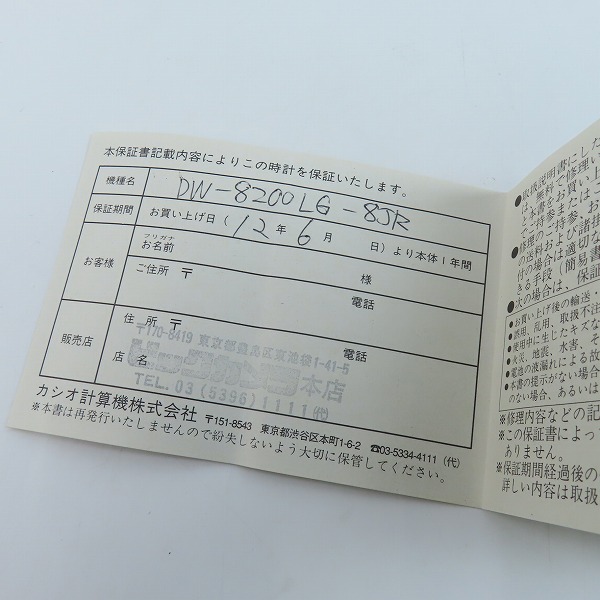 本保証書記載内容によりこの時計を保証いたします。
機種名 DW-8200LG-8JR
保証期間 お買い上げ日(12年6月 日)より本体1年間
お客様
フリガナ
お名前 様
ご住所 〒
電話
販売店
住所 〒
〒170-8419 東京都豊島区東池袋1-41-5
電話
店名 本店
TEL.03(5396)1111(代)
カシオ計算機株式会社 〒151-8543 東京都渋谷区本町1-6-2 ☎03-5334-4111(代)
※本書は再発行いたしませんので紛失しないよう大切に保管してください。
●取扱説明書にした
●修理の
付の場合は適切な
きる手段(簡易書
●次の場合は、保証
●お買い上げ後の輸送、
●誤用、乱用、取扱不注
●使用中に生じたキズな
●火災、地震、水害、そ
●電池の液漏れによる故
●本書の提示がない場合
のない場合、あるいは
※修理内容などの記
※この保証書によっ
ありません。
※保証期間経過後の
詳しい内容は取扱